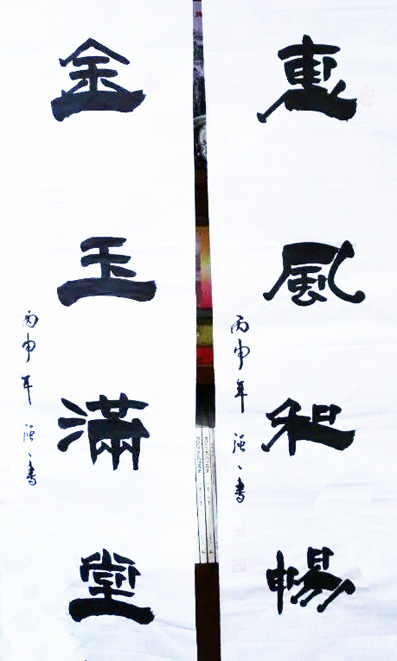 惠風和暢
丙申年 書
金玉滿堂
丙申年 書